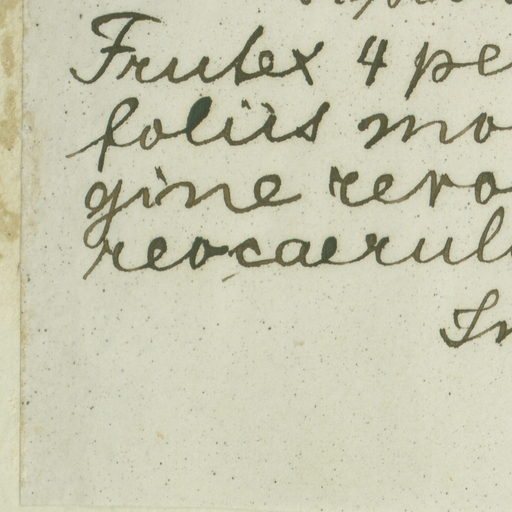 Frutex 4 pe
foliis mo
gine revo
reocaerul
In